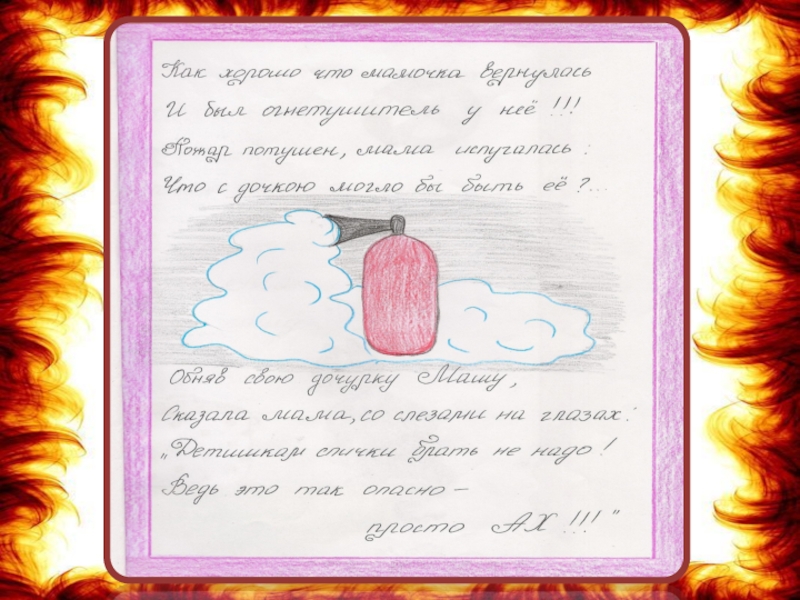 Как хорошо что мамочка вернулась
И был огнетушитель у неё !!!
Пожар потушен, мама испугалась :
Что с дочкою могло бы быть её ?...
Обняв свою дочурку Машу,
Сказала мама, со слезами на глазах:
„Детишкам спички брать не надо !
Ведь это так опасно –
просто АХ !!!"